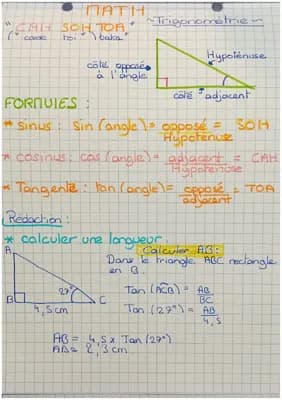 MATH
~Trigonométrie~
"CAH SOH TOA"
Hypoténuse
côté opposé
à l'angle
côté adjacent
FORMULES :
* sinus : sin (angle) = opposé / Hypoténuse = SOH
* cosinus : cos (angle) = adjacent / Hypoténuse = CAH
* Tangente : tan (angle) = opposé / adjacent = TOA
Rédaction :
* calculer une longueur :
Calculer AB :
Dans le triangle ABC rectangle
en B.
A
B
C
27°
4,5 cm
Tan (ACB) = AB / BC
Tan (27°) = AB / 4,5
AB = 4,5 x Tan (27°)
AB ≈ 2,3 cm